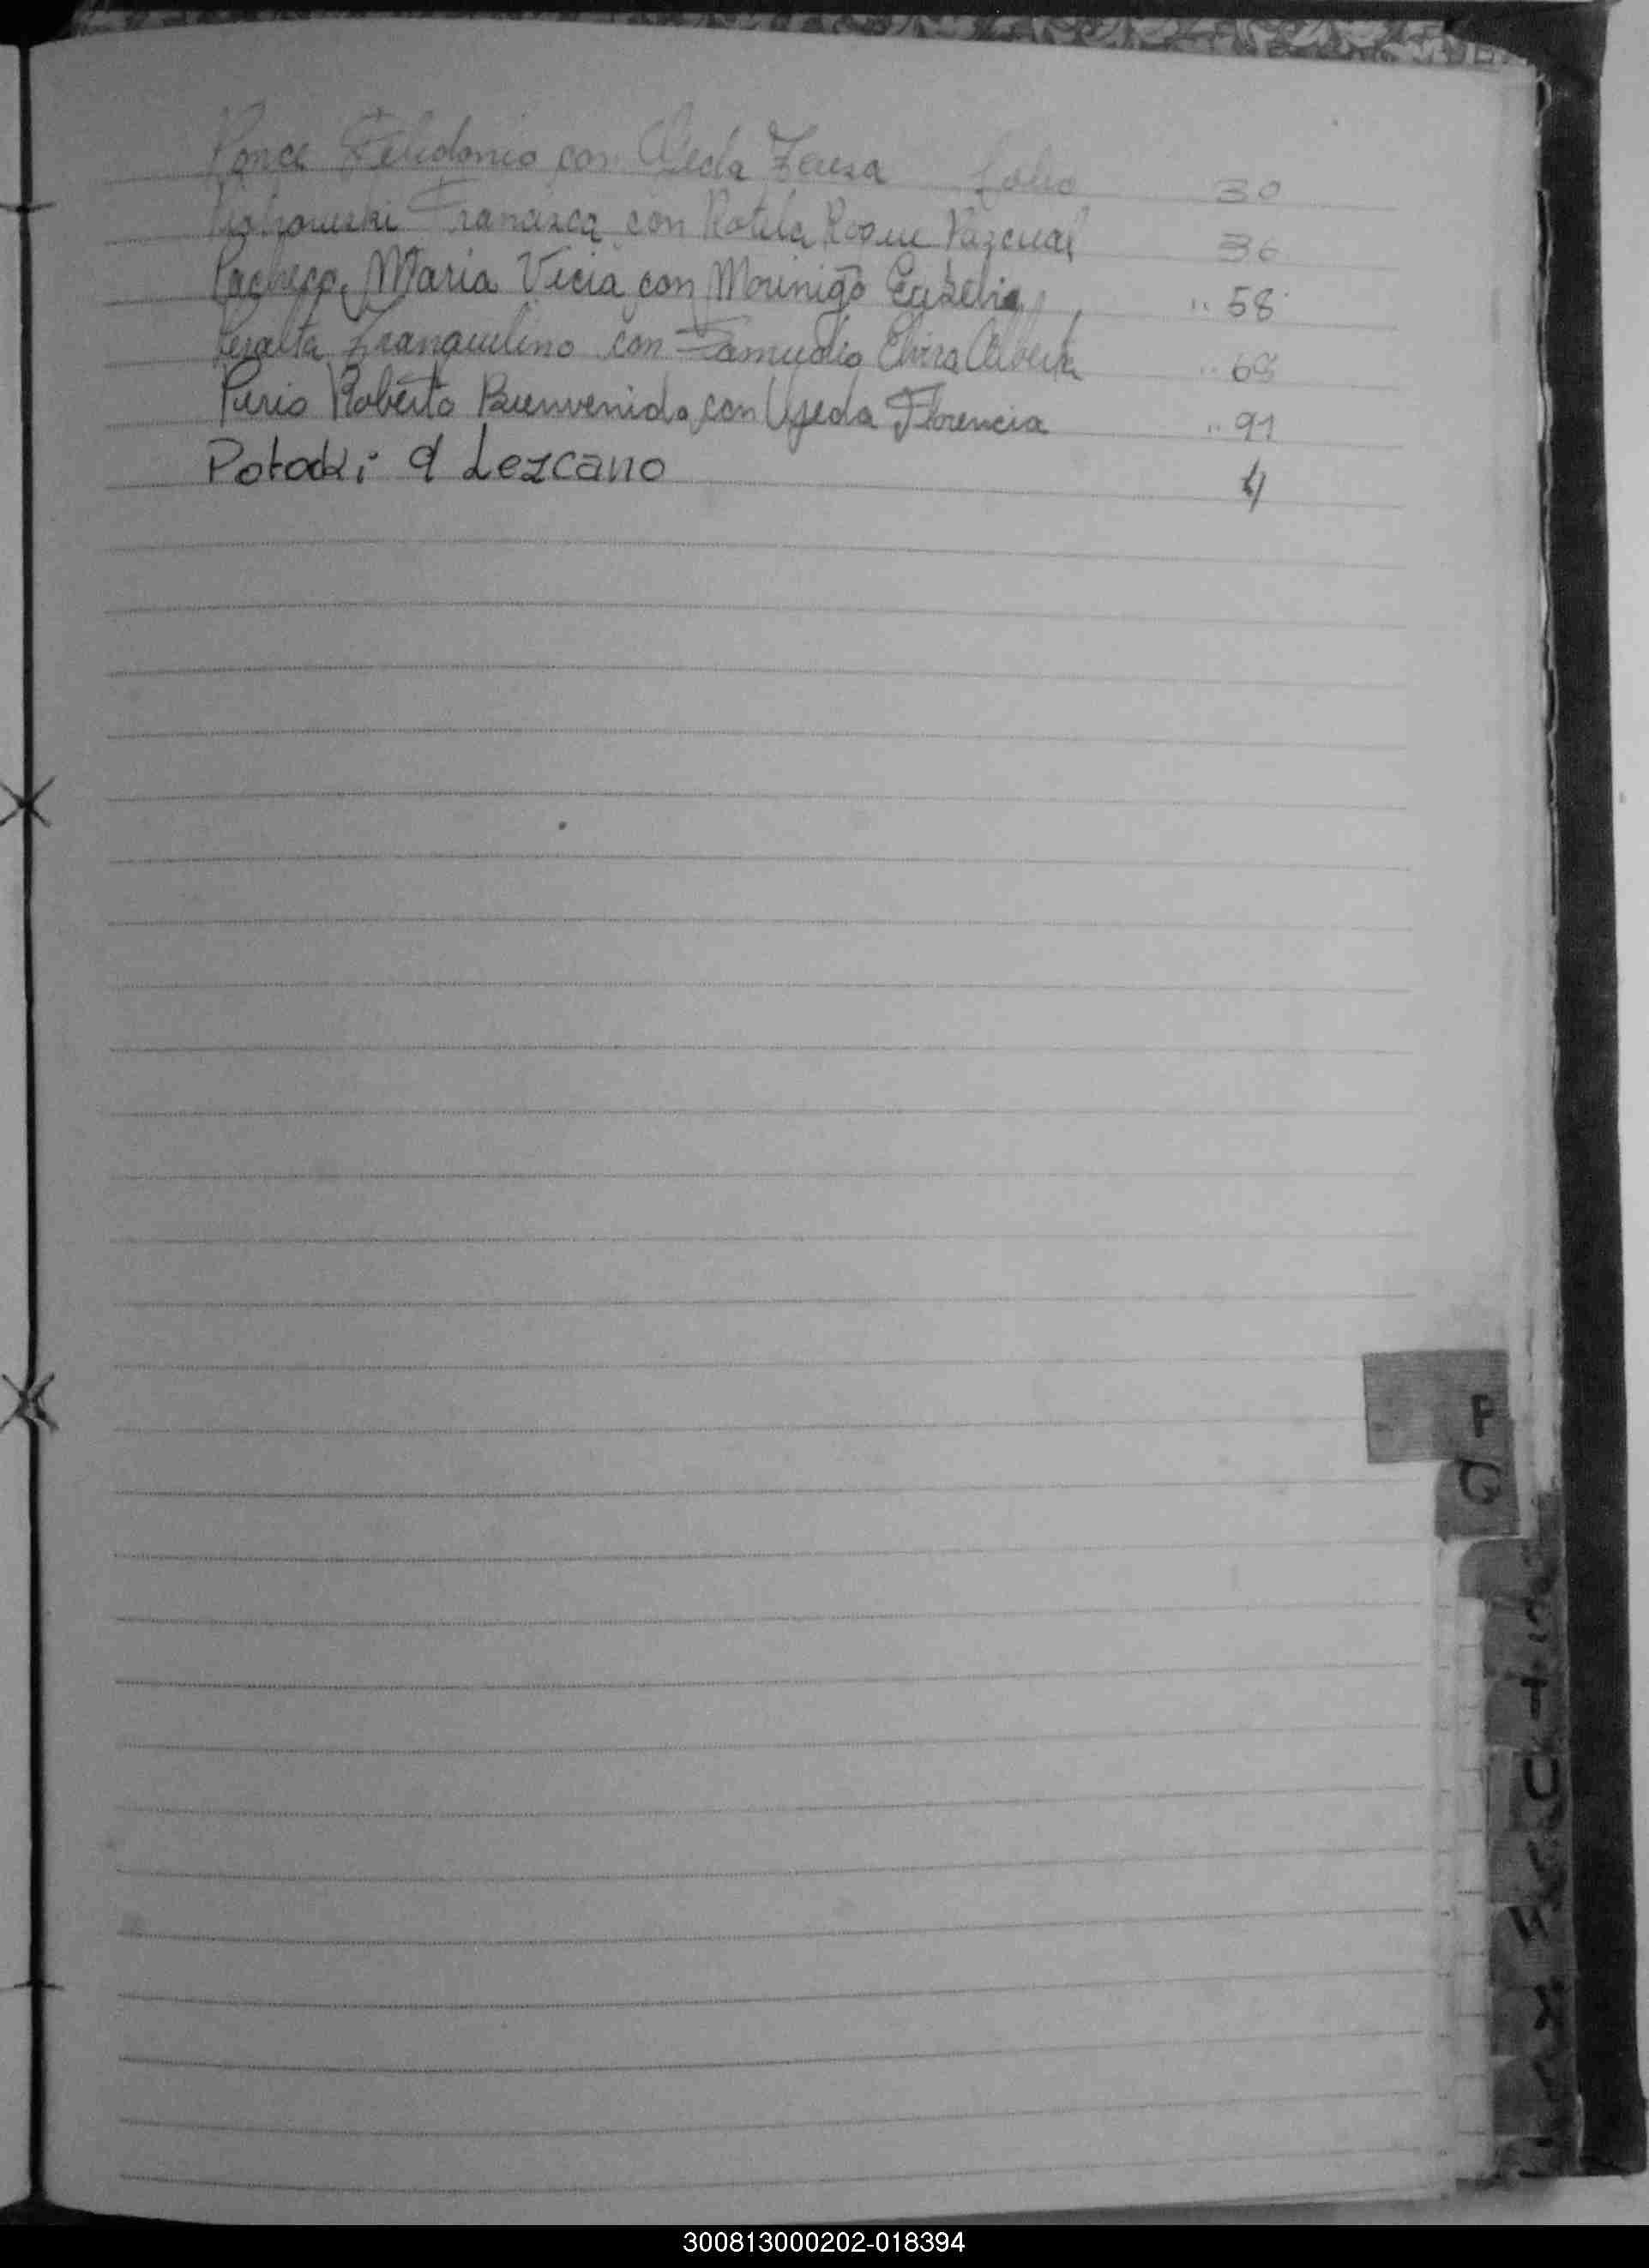 Ponce Celedonio con Ojeda Teresa folio 30
Francisca con Rotela Roque Pascual 36
Pacheco Maria Vicia con Mourinigo Eusebia " 58
Peralta Tranquilino con Zamudio Elvira Alberta " 68
Puris Roberto Bienvenido con Ojeda Florencia " 91
Potocki q Lezcano 4
P
Q
300813000202-018394